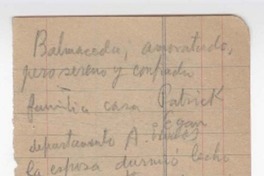 Balmaceda, amoratado,
pero sereno y confiado
familia casa Patrick
Egan
departamento A.
la esposa durmió lecho